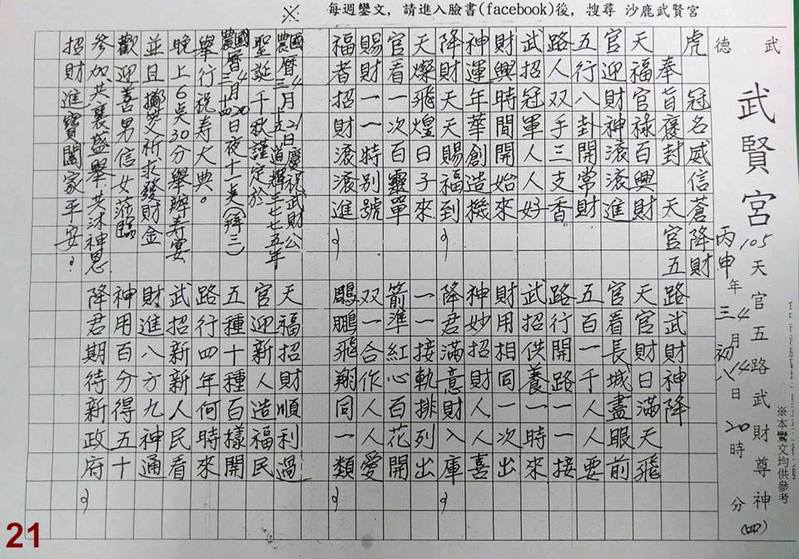 ※ 每週鑾文，請進入臉書(facebook)後，搜尋 沙鹿武賢宮
武德 武賢宮
105 丙申年三月初八 4 14日20時 分
天官五路武財尊神(四)
※本鸞文均供參考
虎冠名威信蒼降財
奉旨褒封 天官五路武財神降
天福官祿百興財
官迎財神滾滾進
五行八卦開常財
路人双手三支香
武招冠軍人人好
財興時間開始來
神運年華創造機
降財天天賜福到
天燦飛煌日子來
官看一次百靈單
賜財一一特別號
福者招財滾滾進
天官財日滿天飛
官看長城盡眼前
五百一千人人要
路行開路一一接
武招供養一時來
財用相同一次出
神妙招財人人喜
降君滿意財入庫
一一接軌排列出
箭準紅心百花開
双一合作人人愛
鵬飛翔同一類
國曆4月21日慶祝武財公
農曆三月十五道輝三七七五年
聖誕千秋謹定於
國曆4月20日夜十一點(拜三)
農曆三月十四
舉行祝寿大典。
晚上6點30分舉辦寿宴
並且擲筊祈求發財金
歡迎善男信女蒞臨
參加共襄盛舉共沐神恩
招財進寶闔家平安。
天福招財順利過
官迎新人造福民
五種十種百樣開
路行四年何時來
武招新新人民看
財進八方九神通
神用百分得五十
降君期待新政府
21